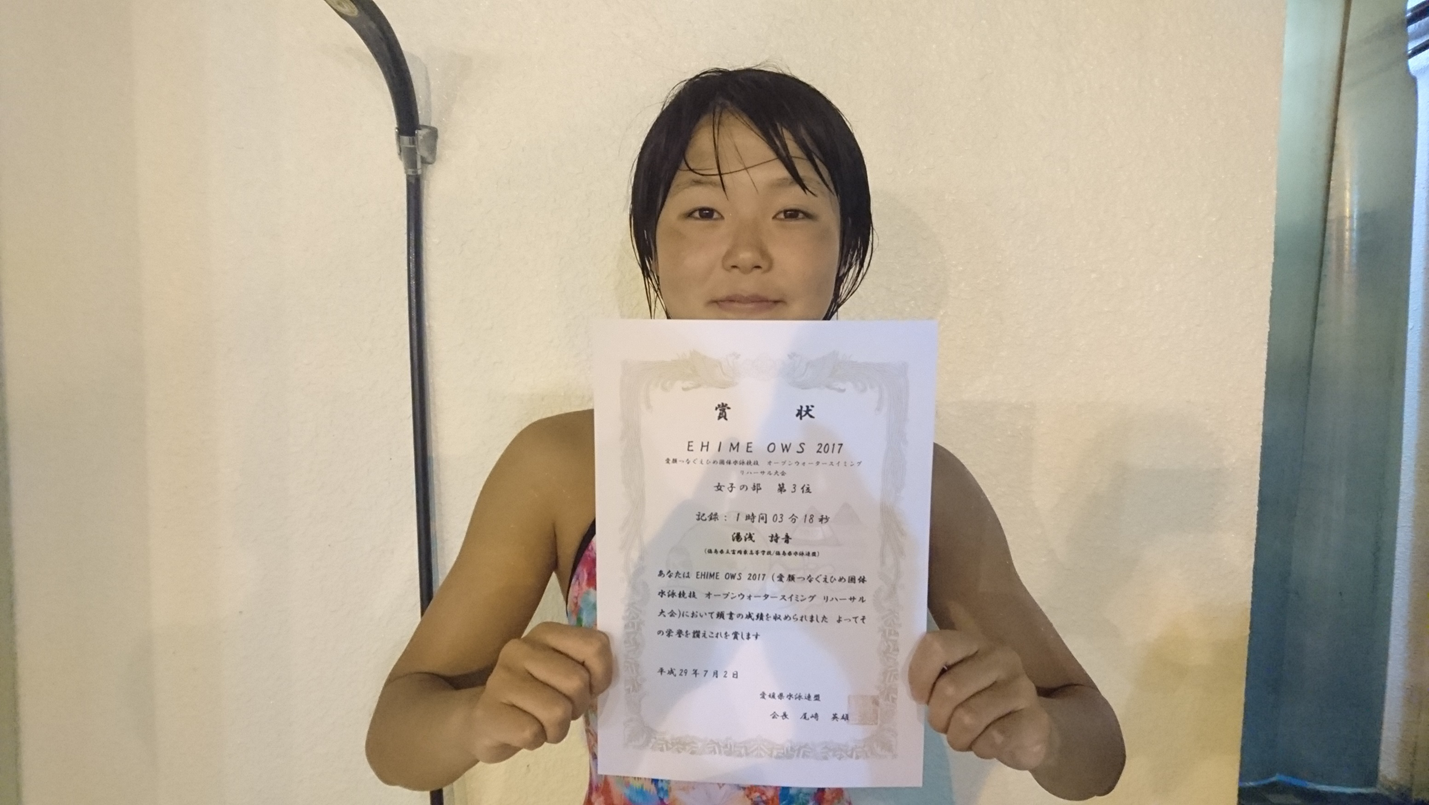 賞 状
EHIME OWS 2017
愛顔つなぐえひめ国体水泳競技 オープンウォータースイミング
リハーサル大会
女子の部 第3位
記録：1時間03分18秒
湯浅 詩音
(徳島県立富岡東高等学校/徳島県水泳連盟)
あなたは EHIME OWS 2017 (愛顔つなぐえひめ国体
水泳競技 オープンウォータースイミング リハーサル
大会)において頭書の成績を収められました よってそ
の栄誉を讃えこれを賞します
平成29年7月2日
愛媛県水泳連盟
会長 尾崎 英雄